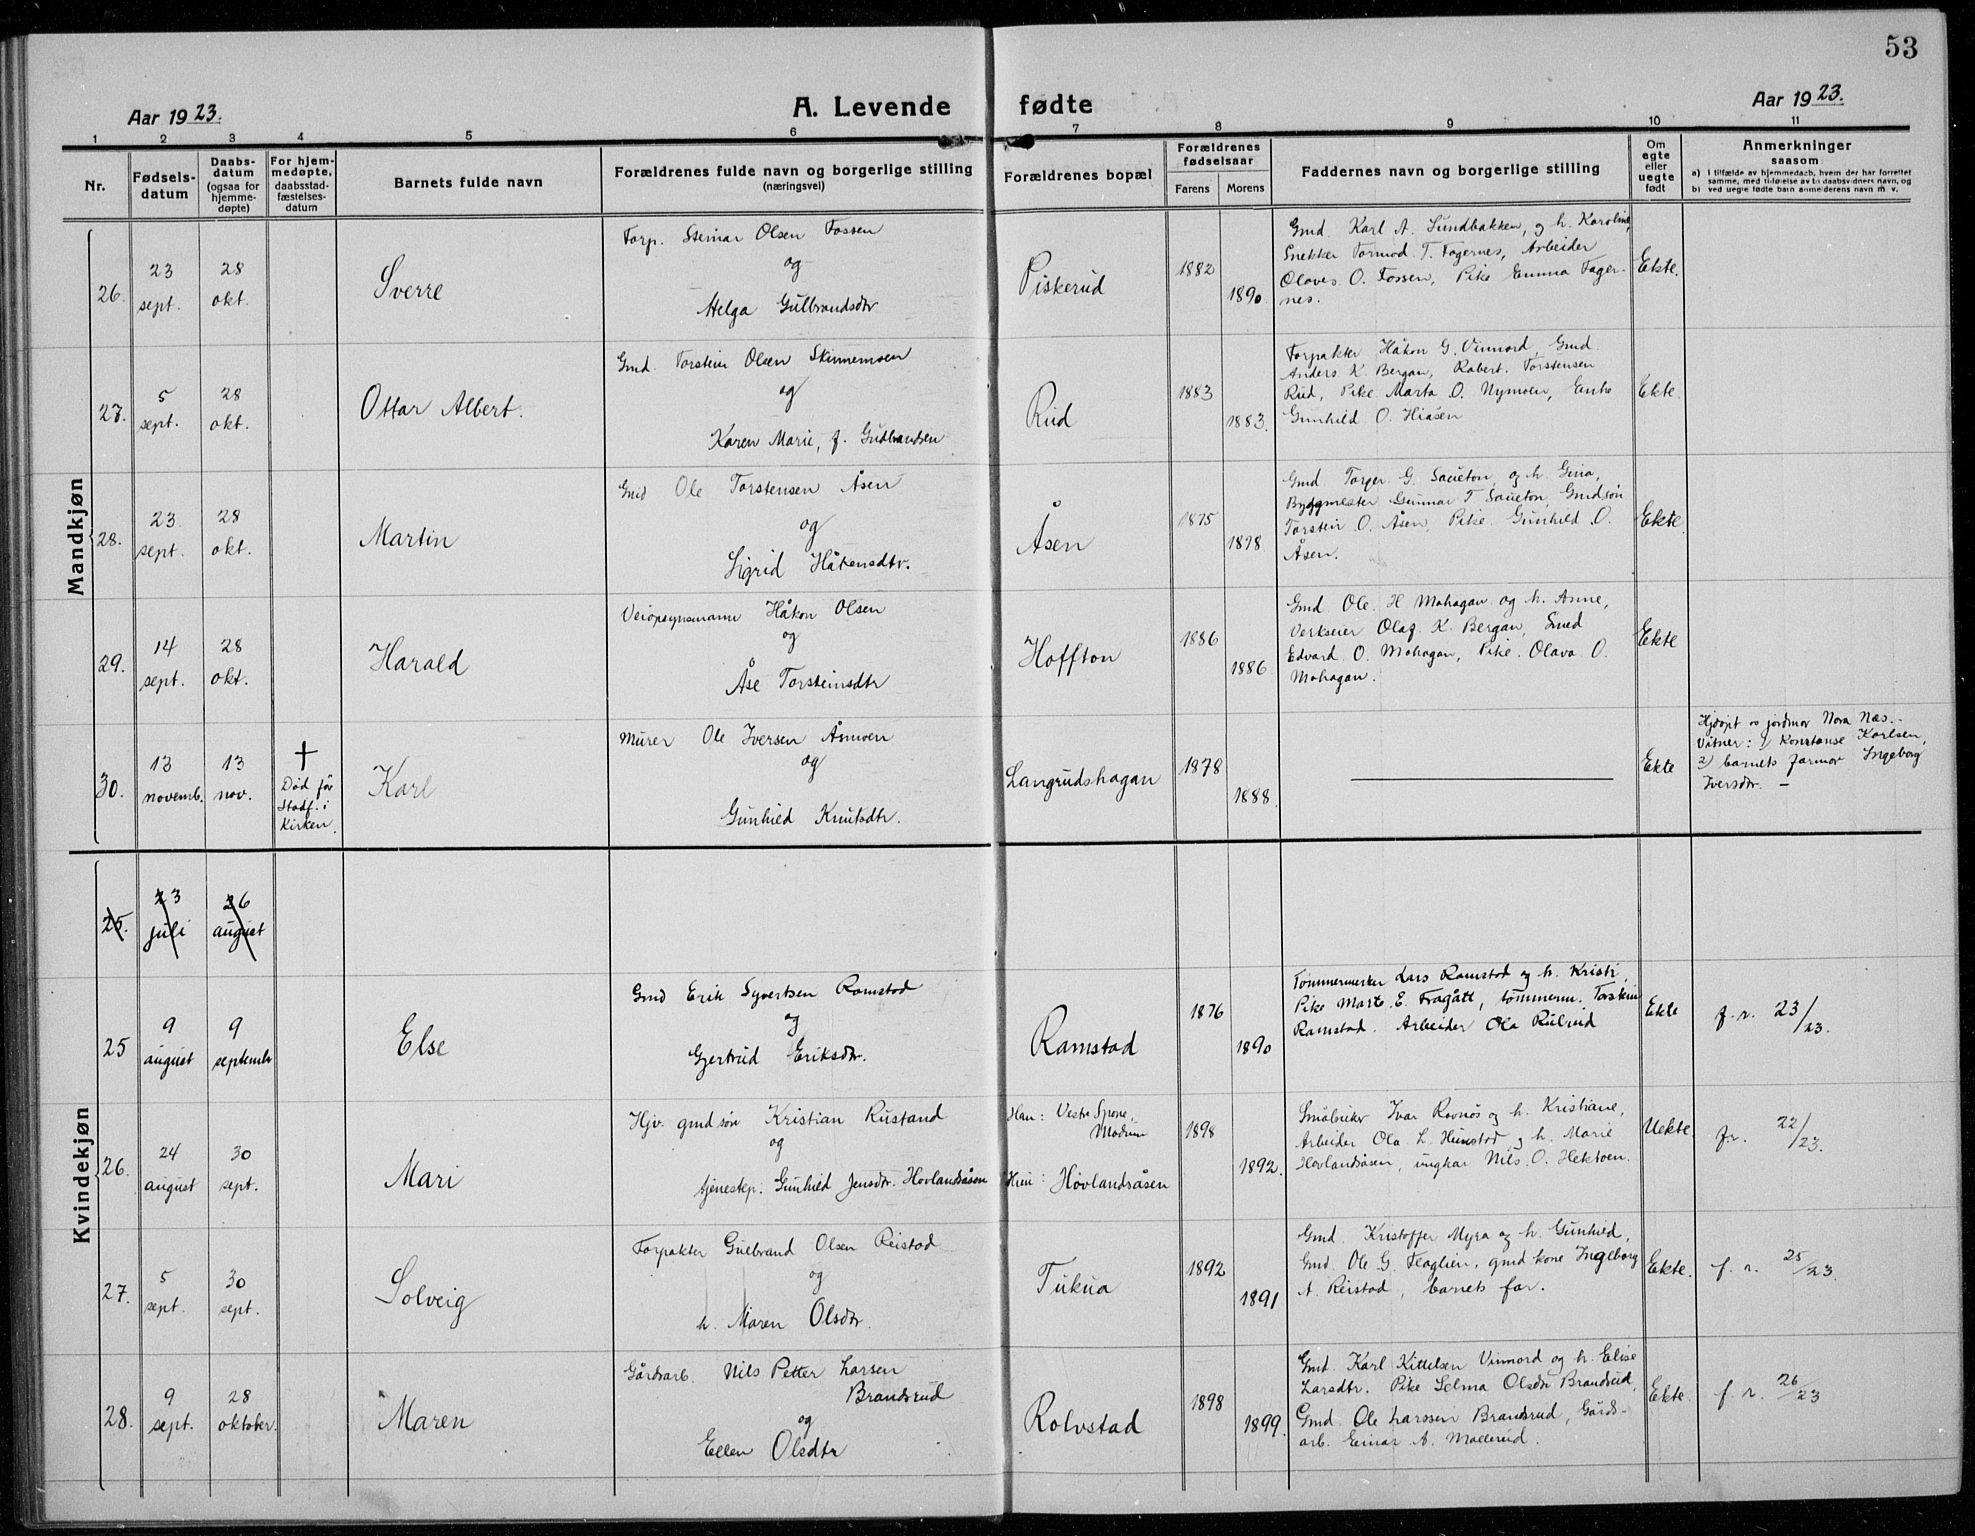 53
Aar 1923.
A. Levende fødte
Aar 1923.
1 2 3 4 5 6 7 8 9 10 11
Nr.
Fødsels-
datum
Daabs-
datum
(ogsaa for
hjemme-
døpte)
For hjem-
medøpte,
daabsstad-
fæstelses-
datum
Barnets fulde navn
Forældrenes fulde navn og borgerlige stilling
(næringsvei)
Forældrenes bopæl
Forældrenes
fødselsaar
Farens Morens
Faddernes navn og borgerlige stilling
Om
egte
eller
uegte
født
Anmerkninger
saasom
a) I tilfælde av hjemmedaab, hvem der har forrettet
samme, med tilføielse av to daabsvidners navn, og
b) ved uegte fødte barn anmelderens navn m. v.
Mandkjøn
26.
23
sept.
28
okt.
Sverre
Forp. Steinar Olsen Fossen
og
Helga Gulbrandsdtr
Piskerud
1882
1890.
Gmd. Karl A. Sundbakken, og h. Karoline,
Snekker Tormod T. Fagernes, Arbeider
Olaves O. Fossen, Pike Emma Fager-
nes.
Ekte.
27.
5
sept.
28
okt.
Ottar Albert.
Gmd. Torstein Olsen Skinnemoen
og
Karen Marie, f. Gudbrandsen
Rud
1883
1883.
Forpakter Håkon G. Vinnord, Gmd.
Anders K. Bergan, Robert Torstensen
Rud, Pike Marta O. Nymoen, Enke
Gunhild O. Hiåsen
Ekte.
28.
23
sept.
28
okt.
Martin
Gmd Ole Torstensen Åsen
og
Sigrid Håkensdtr.
Åsen
1875
1878
Gmd Torger G. Saueton, og h. Gina,
Byggmester Gunnar T. Saueton, Gmdsøn
Torstein O. Åsen, Pike Gunhild O.
Åsen.
Ekte.
29.
14
sept.
28
okt.
Harald
Veiopsynsmann Håkon Olsen
og
Åse Torsteinsdtr
Hoffton
1886
1886
Gmd Ole H Mohagan og h. Anne,
Verkseier Olaf K. Bergan, Smed
Edvard O. Mohagan, Pike Olava O.
Mohagan.
Ekte
30.
13
novemb.
13
nov.
†
Død før
Stadf. i
Kirken.
Karl
Murer Ole Iversen Åsmoen
og
Gunhild Knutsdtr.
Langrudshagan
1878
1888.
Ekte
Hjdøpt av jordmor Nora Næs.-
Vitner: 1) Konstanse Karlsen,
2) barnets farmor Ingeborg
Iversdtr. -
Kvindekjøn
25.
23
juli
26
august
25
9
august
9
septembr
Else
Gmd Erik Syvertsen Ramstad
og
Gjertrud Eriksdtr.
Ramstad
1876
1890
Tømmermerker Lars Ramstad og h. Kristi,
Pike Marte E. Fragått, tømmerm. Torstein
Ramstad. Arbeider Ole Rulrud
Ekte
f. r. 23/23.
26.
24
august
30
sept.
Mari
Hjv. gmdsøn Kristian Rustand
og
tjenestep. Gunhild Jensdtr. Hovlandsåsen
Han: Vestre Spone,
Modum
Hun: Hovlandsåsen
1898
1892.
Småbruker Ivar Rovnås og h. Kristiane,
Arbeider Ole L. Hunstad og h. Marie
Hovlandsåsen, ungkar Nils O. Hektoen.
Uekte.
f.r. 22/23.
27.
5
sept.
30
sept.
Solveig
Forpakter Gulbrand Olsen Reistad
og
h. Maren Olsdtr.
Tukua
1892
1891
Gmd. Kristoffer Myra og h. Gunhild,
Gmd. Ole G. Flaglien, gmd kone Ingeborg
A. Reistad, barnets far.
Ekte.
f. r. 25/23.
28.
9
sept.
28
oktober.
Maren
Gårdsarb. Nils Petter Larsen
Brandsrud
og
Ellen Olsdtr
Rolvstad
1898
1899.
Gmd. Karl Kittelsen Vinnord og h. Elise
Larsdtr. Pike Selma Olsdtr Brandsrud,
Gmd. Ole Larssen Brandsrud, Gårds-
arb. Einar A. Mollerud.
Ekte.
f. r. 26/23